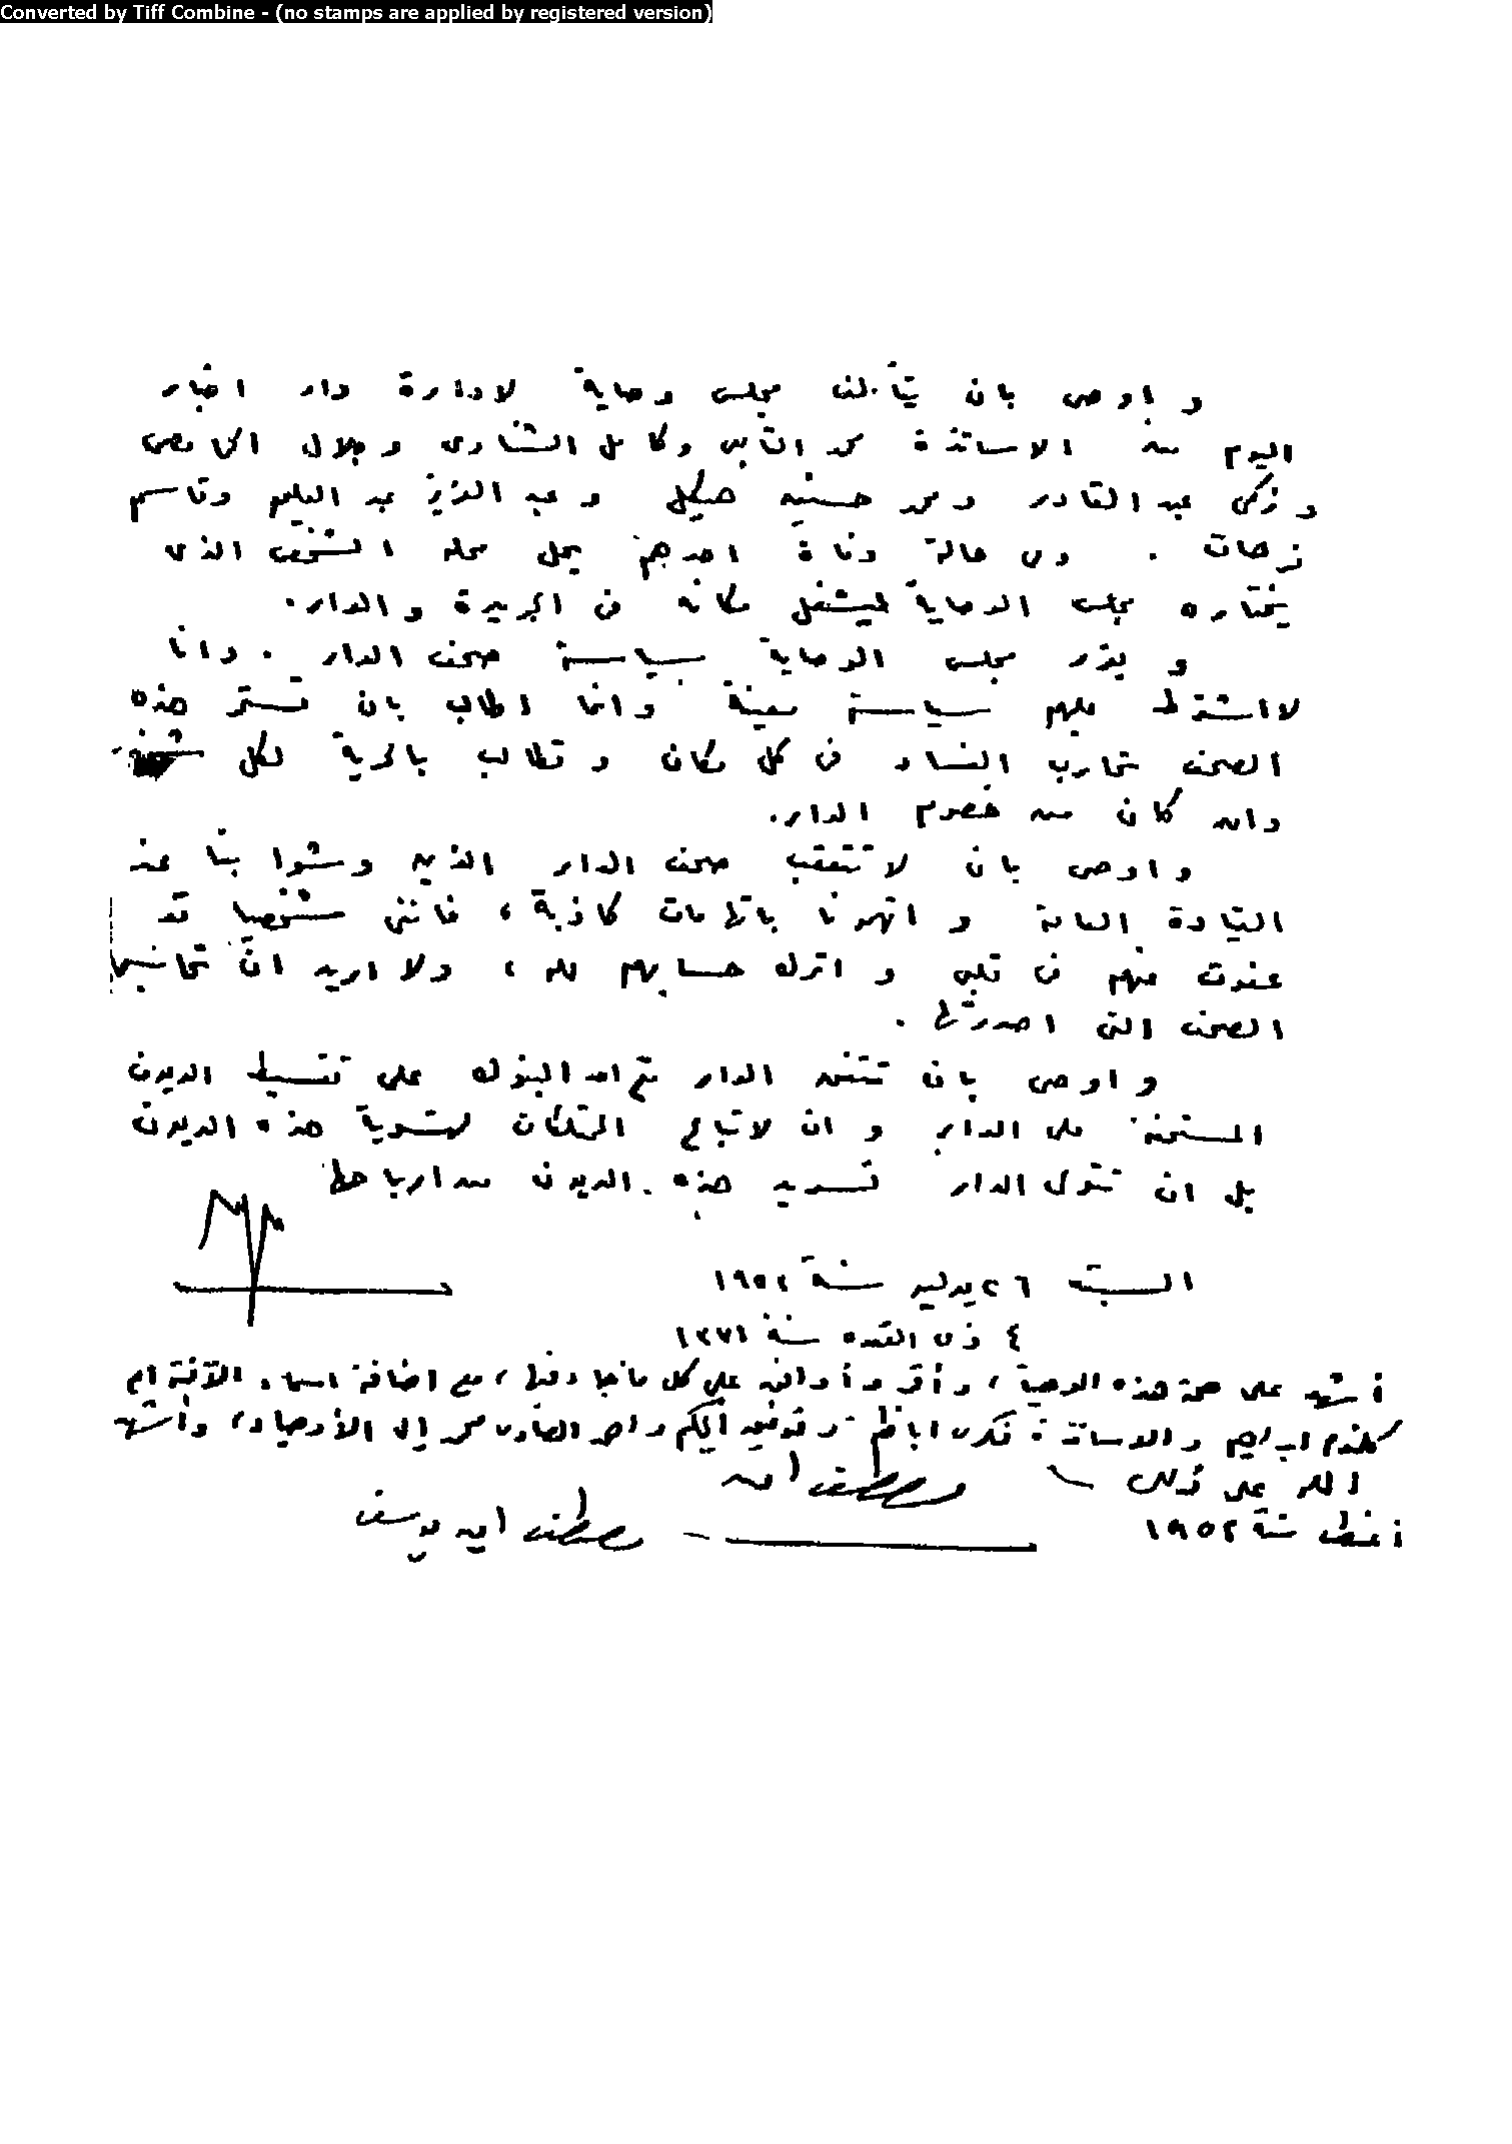 Converted by Tiff Combine - (no stamps are applied by registered version)
واوصى بان يتألف مجلس وصاية لادارة دار اخبار
اليوم من الاساتذة محمد التابعى وكامل الشناوى وجلال الحمامصى
وزكى عبد القادر ومحمد حسنين هيكل وعبد العزيز عبد العليم وقاسم
فرحات . وفى حالة وفاة احدهم يحل محله الشخص الذى
يختاره مجلس الوصاية ليشغل مكانه فى الجريدة والدار.
ويقرر مجلس الوصاية سياسة صحف الدار . وانا
لا اشترط عليهم سياسة معينة وانما اطالب بان تستمر هذه
الصحف تحارب الفساد فى كل مكان وتطالب بالحرية لكل شخص
وان كان من خصوم الدار.
واوصى بان لا تتعقب صحف الدار الذين وشوا بنا عند
القيادة العامة واتهمونا باتهامات كاذبة ، فاننى شخصيا قد
عفوت عنهم فى قلبى واترك حسابهم لله ، ولا اريد ان تحاسبهم
الصحف التى اصدرتها .
واوصى بان تتفق الدار مع احد البنوك على تقسيط الديون
المستحقة على الدار وان لا تباع الممتلكات لتسوية هذه الديون
بل ان تتولى الدار تسديد هذه الديون من ارباحها
السبت ٢٦ يوليو سنة ١٩٥٢
٤ ذى القعده سنة ١٣٧١
أشهد على صحة هذه الوصية ، وأقر وأوافق على كل ما جاء فيها ، مع اضافة اسماء الآنسة ام
كلثوم ابراهيم والاساتذة فكرى اباظة وتوفيق الحكيم واحمد الصاوى محمد إلى الأوصياء ، وأشهد
الله على ذلك مصطفى امين
أغسطس سنة ١٩٥٢ مصطفى امين يوسف